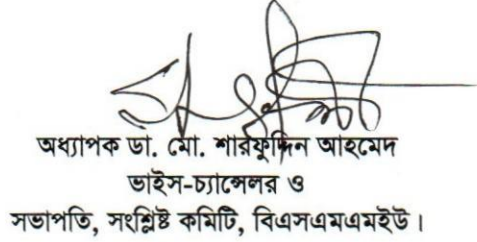 অধ্যাপক ডা. মো. শারফুদ্দিন আহমেদ
ভাইস-চ্যান্সেলর ও
সভাপতি, সংশ্লিষ্ট কমিটি, বিএসএমএমইউ।